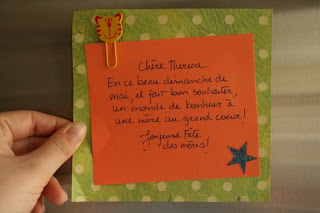 Chère Theresa
En ce beau dimanche de
mai, il fait bon souhaiter,
un monde de bonheur à
une mère au grand coeur!
Joyeuse Fête
des mères!